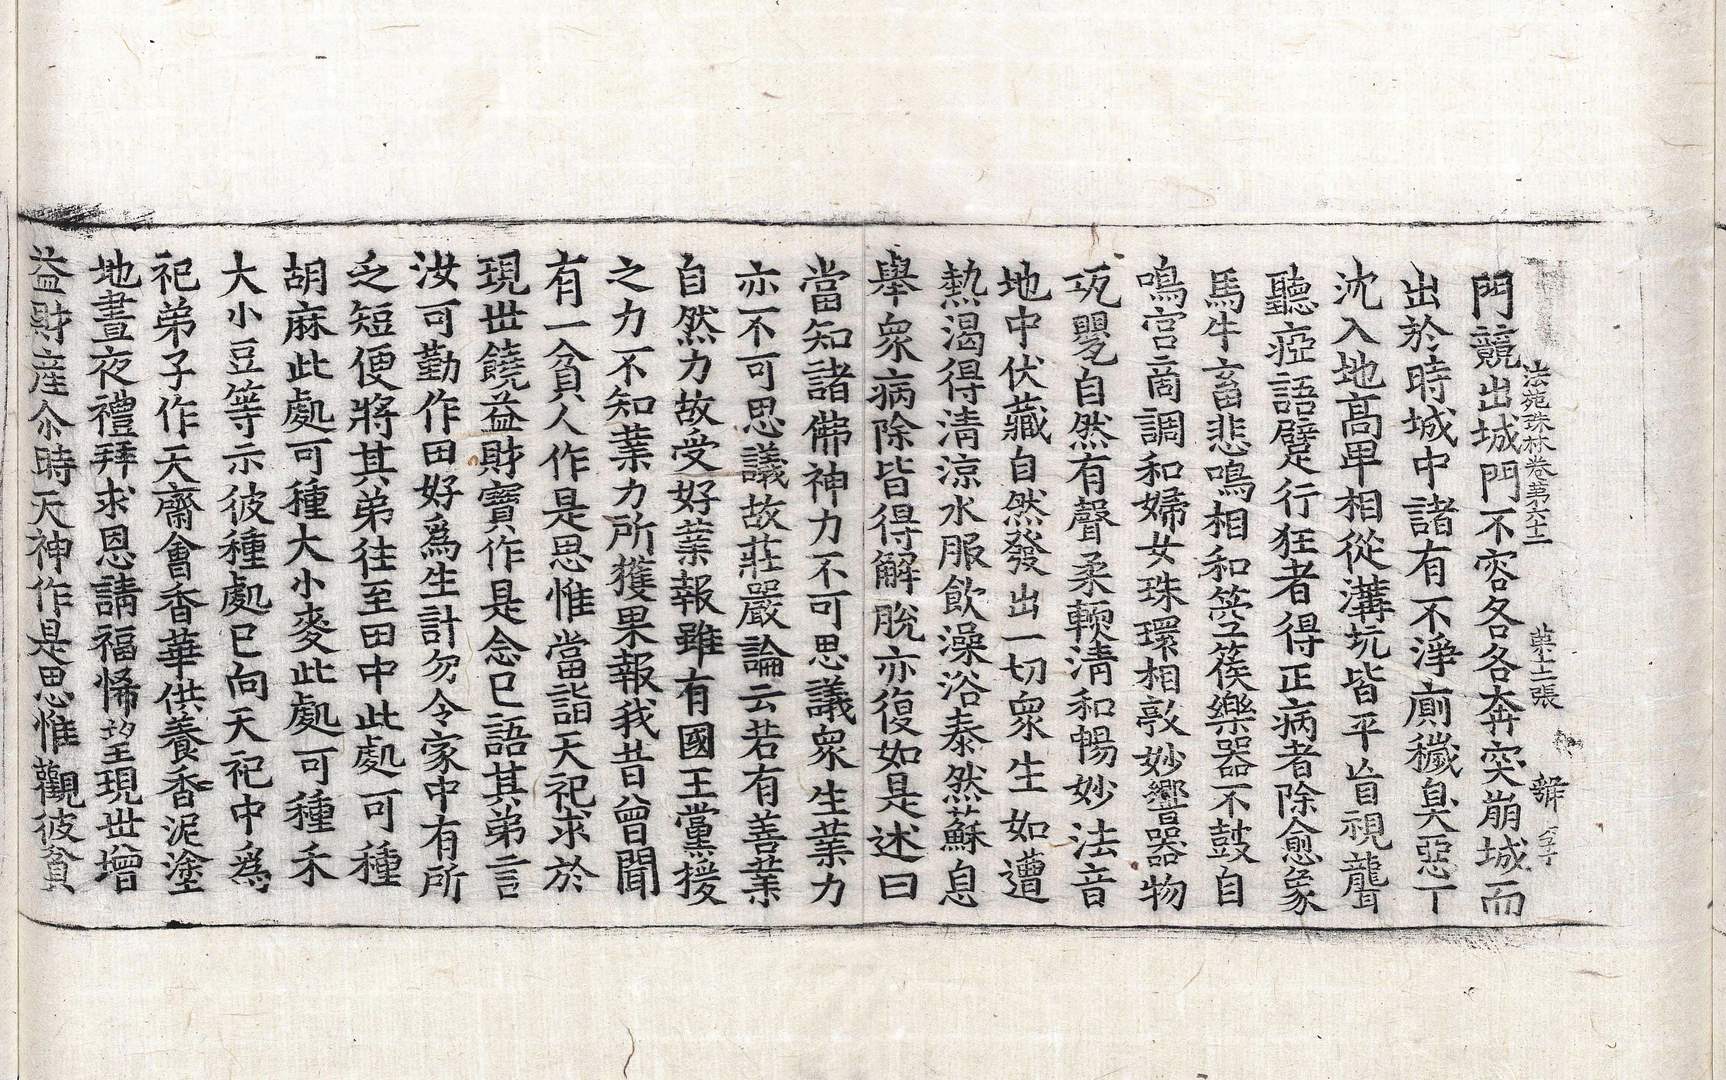 法苑珠林卷第六十二 第十二張
門競出城門不容各各奔突崩城而
出於時城中諸有不淨廁穢臭惡下
沈入地高卑相從溝坑皆平盲視聾
聽瘂語躄行狂者得正病者除愈象
馬牛畜悲鳴相和箜篌樂器不鼓自
鳴宮商調和婦女珠環相敲妙響器物
㼚甖自然有聲柔軟清和暢妙法音
地中伏藏自然發出一切衆生如遭
熱渴得清涼水服飲澡浴泰然蘇息
舉衆病除皆得解脫亦復如是述曰
當知諸佛神力不可思議衆生業力
亦不可思議故莊嚴論云若有善業
自然力故受好業報雖有國王黨援
之力不知業力所獲果報我昔曾聞
有一貧人作是思惟當詣天祀求於
現世饒益財寶作是念已語其弟言
汝可勤作田好爲生計勿令家中有所
乏短便將其弟往至田中此處可種
胡麻此處可種大小麥此處可種禾
大小豆等示彼種處已向天祀中爲
祀弟子作天齋會香華供養香泥塗
地晝夜禮拜求恩請福悕望現世增
益財產尒時天神作是思惟觀彼貧